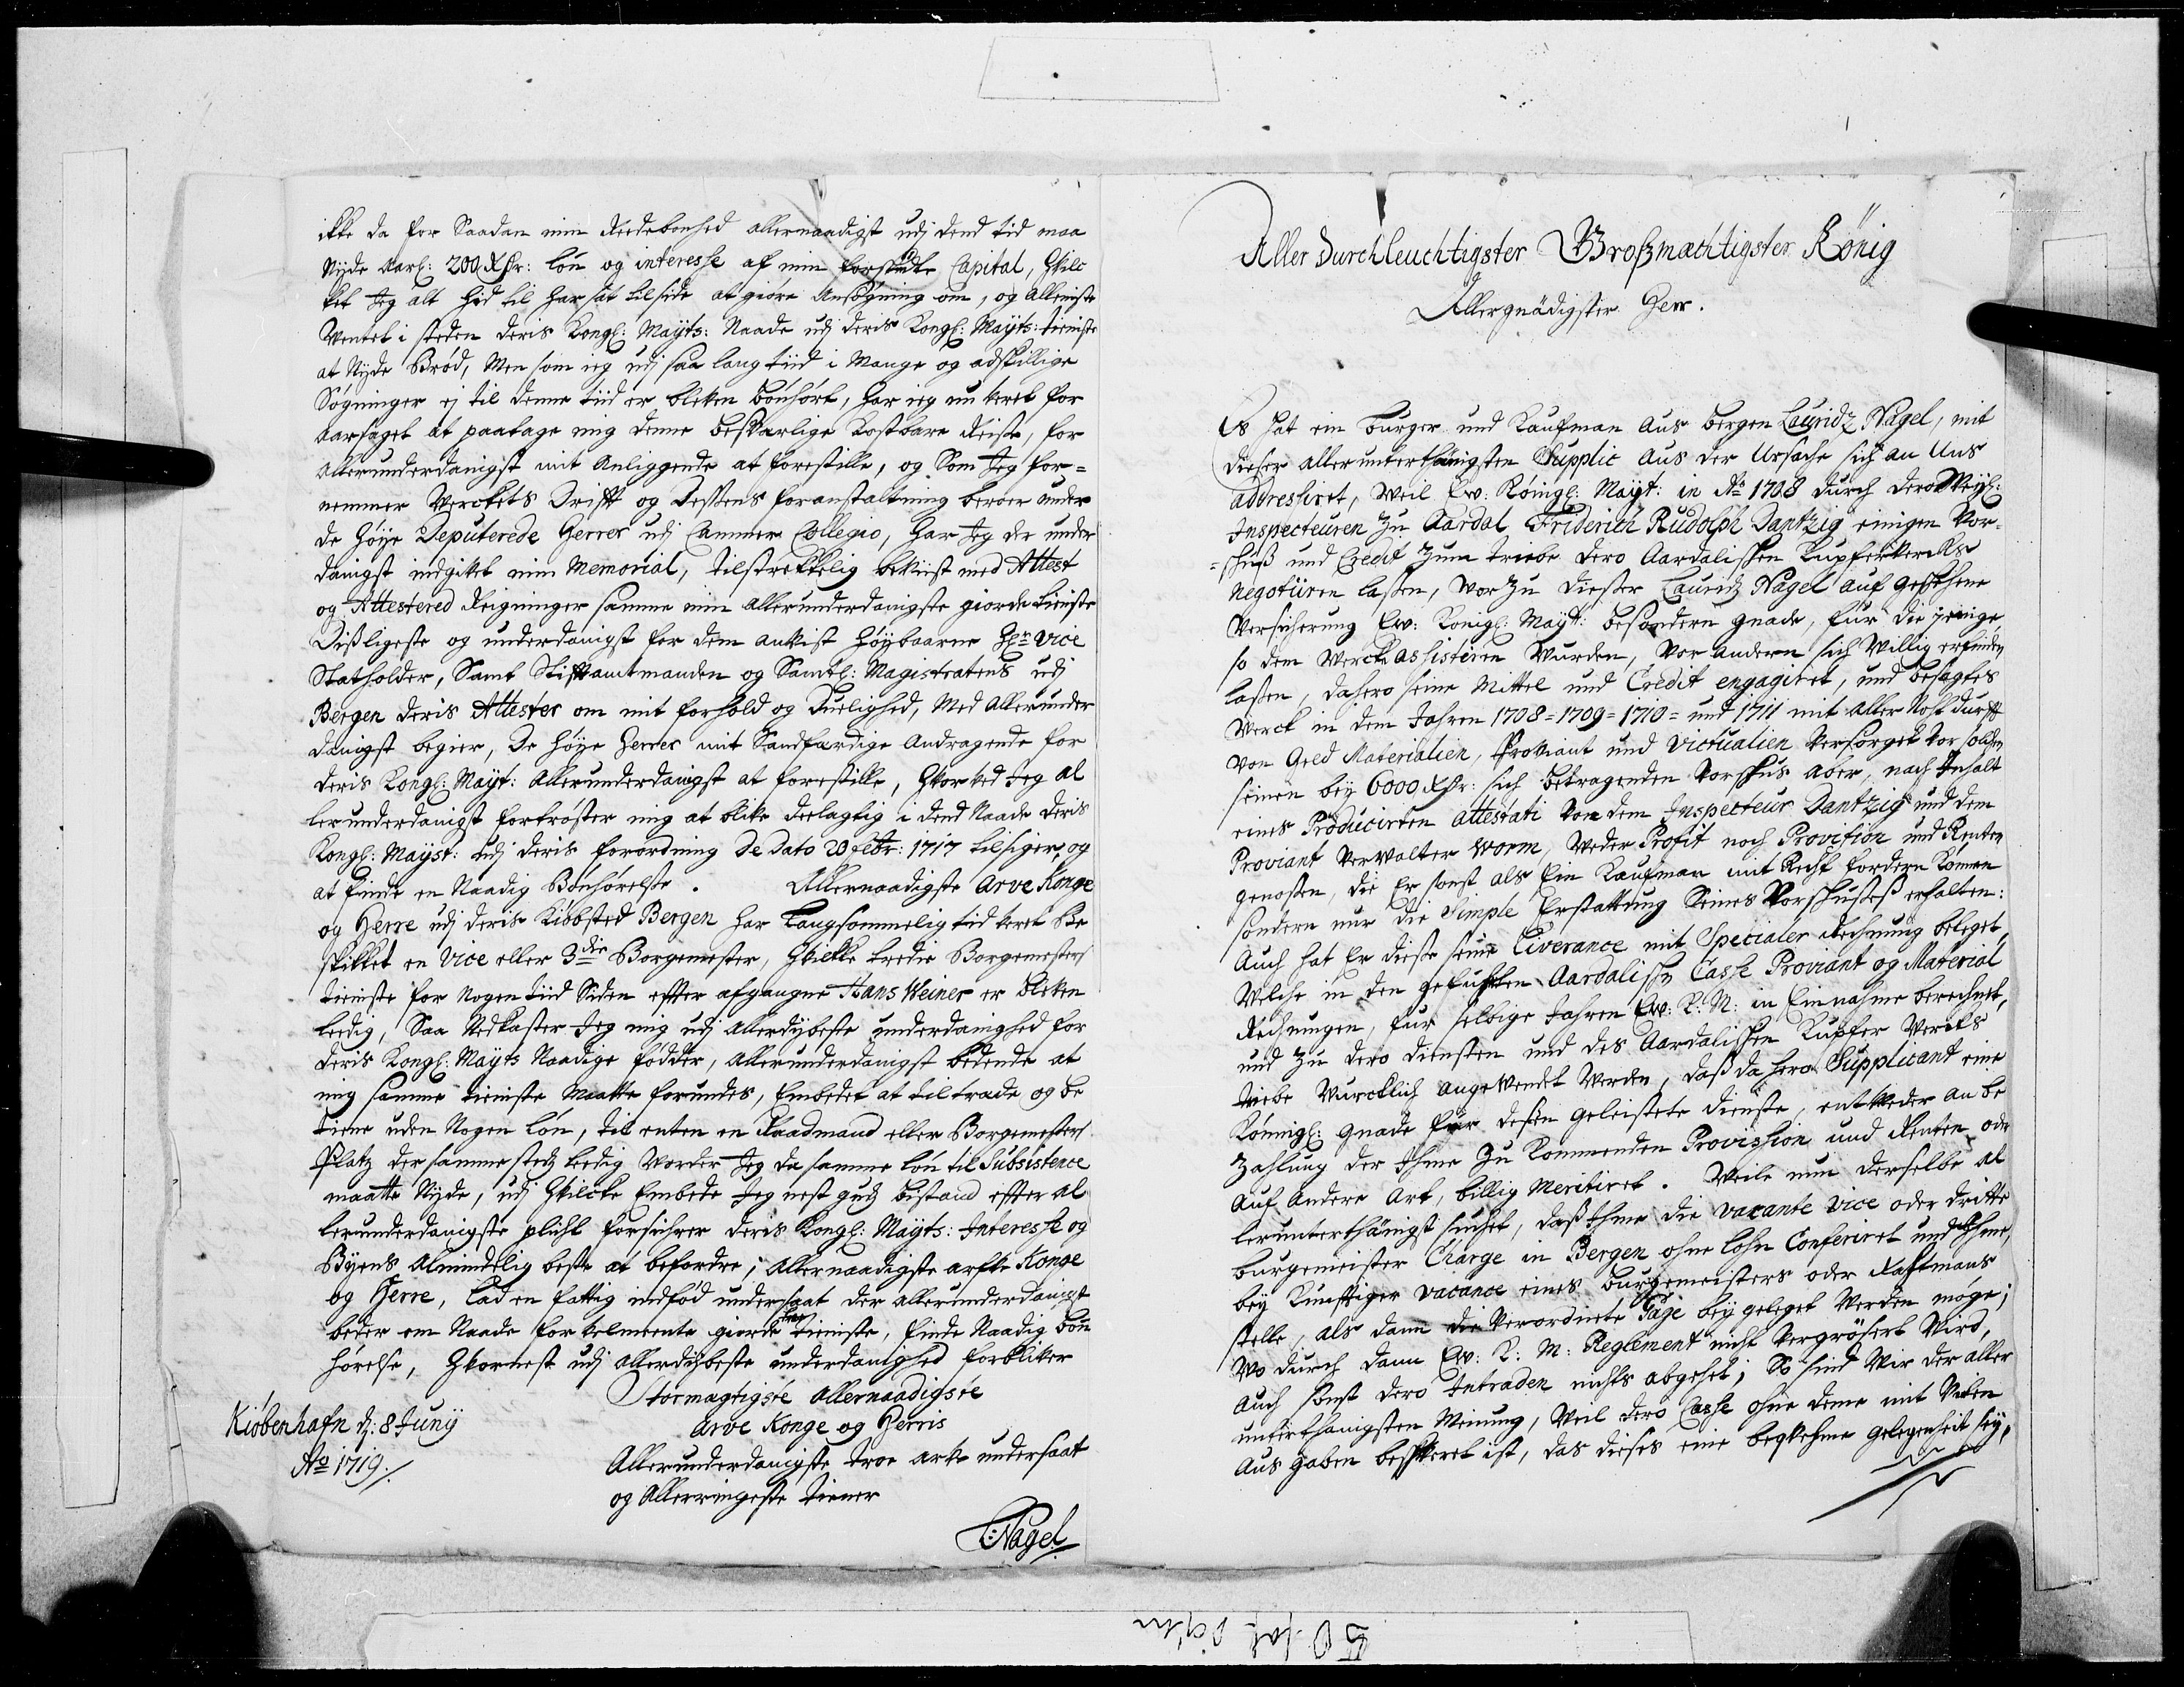 ikke da for Saadan min Reedebonhed allernaadigst udj dend tid maa
Nyde aarl: 200 Rdr: lön og interesse af min forstrakte Capital, Hvilc
ket Jeg alt hid til har sat til side at giöre Ansögning om, og alleniste
Ventet i steden deris Kongl: Mayts: Naade udj deris Kongl: Mayts: tieniste
at Nyde Bröd, Men som ieg udj saa lang tiid i Mange og adskillige
Sögninger ej til denne tiid er bleven bönhört, har ieg nu veret for
aarsaget at paatage mig denne besværlige kostbare Reise, for
allerunderdanigst mit anliggende at forestille, og Som Jeg for=
nemmer Verckets Drifft og Dessens foranstaltning beroer under
de höye Deputerede Herrer udj Cammer Collegio, har Jeg der under
danigst indgivet min Memorial, tilstrekkelig beviist med Attest
og Attestered Reigninger samme min allerunderdanigste giorde tieniste
Disligeste og underdanigst for dem anvist Höybaarne Hr: Vice
Statholder, Samt Stifftamtmanden og Samtl: Magistratens udj
Bergen deris Attester om mit forhold og Duelighed, Med Allerunder
danigst begier, De höye Herrer mit Sandfærdige Andragende for
deris Kongl: Mayt: Allerunderdanigst at forestille, Hvorved Jeg al
lerunderdanigst fortröster mig at blive deelagtig i dend Naade deris
Kongl: Mayst: udj deris forordning de dato 20 Febr: 1717 tilsiger, og
at finde en Naadig Bönhörelse. Allernaadigste Arve Konge
og Herre udj deris Kiöbsted Bergen har Langsommelig tid veret Be
skikket en Vice eller 3die Borgemester, Hvilke tredie Borgemesters
tieniste for nogen tiid Siden effter afgangne Hans Weiner er bleven
leedig, Saa Nedkaster Jeg mig udj allerdybeste underdanighed for
deris Kongl: Mayts Naadige födder, allerunderdanigst bedende at
mig samme tieniste Maatte forundes, Embedet at tiltræde og be
tiene uden nogen lön, til enten en Raadmand eller Borgemesters
Platz der samme steds leedig Vorder Jeg da samme lön til Subsistence
maatte Nyde, udj Hvilcke Embede Jeg nest guds bistand effter al
lerunderdanigste plicht forsichrer deris Kongl: Mayts: Interesse og
Byens almindelig beste at befordre; allernaadigste arfve Konge
og Herre, Lad en fattig indföd undersaat der allerunderdanigst
beder om Naade for velmeente giorde troe tieniste, finde Naadig bön
hörelse, Hvornest udj allerdybeste underdanighed forbliver
Stormagtigste allernaadigste
Arve Konge og Herris
Kiöbenhafn d: 8 Junij
Ao 1719.
Allerunderdanigste troe arve undersaat
og Allerringeste tiener
L: Nagel
Aller Durchleuchtigster Großmachtigster König
Allergnädigster Herr.
Es hat ein Burger und Kaufman aus Bergen Lauridz Nagel, mit
dieser allerunterthänigsten Supplic aus der Ursache sich an Uns
addressiret, Weil Ew: Köngl: Mayt: in Ao 1708 durch dero Weyl:
Inspecteuren zu Aardal Friderich Rudolph Dantzig einigen Vor=
=schuß und Credit zum triebe dero Aardalischen Kupferwercks
negotiiren laßen, Worzu dießer Lauridz Nagel auf geschehene
Versicherung Ew: Konigl: Mayt: besondern gnade, für die jenige
so dem Wercke assistiren Wurden, Vor andern sich Willig erfinden
laßen, dahero seine Mittel und Credit engagiret, und besagtes
Werck in dem Jahren 1708=1709=1710= und 1711 mit aller Nohtdurfft
von Geld Materialien, Proviant und Victualien Versorget vor solchen
seinen bey 6000 Rdr: sich betragenden Vorschus aber, nach Inhalt
eines Producirten attestati von dem Inspecteur Dantzig und dem
Proviant Verwalter Worm, Weder Profit noch Provition und Renten
genoßen, die Er sonst als Ein Kaufman mit Recht fordern können
sondern nur die Simple Erstattung Seines Vorschußes erhalten:
Auch hat Er diese seine Liverance mit Specialer Rechnung beleget,
Welche in den geführten Aardalischen Casse Proviant og Material
Rechnungen, für selbige Jahren Ew: K: M: in Einnahme berechnet,
und zu dero diensten und des Aardalischen Kupfer Wercks
triebe Wurcklich angewendet Werden, daß dahero Supplicant eine
Königl: gnade für deßen geleistete dienste, entweder an be
zahlung der Ihme zu kommenden Provission und Renten oder
auf andere Art, billig Meritiret. Weile nun derselbe al
lerunterthänigst suchet, daß Ihme die vacante Vice oder dritte
burgemeister Charge in Bergen ohne lohn Conferiret und Ihme,
bey künfftiger vacance eines Burgemeisters oder Rahtmans
stelle, als dann die Verordnete Gage bey geleget Werden möge;
Wo durch dann Ew: K: M: Reglement nicht Vergrößert Wird,
auch sonst dero Intraden nichts abgehet; So sind Wir der aller
unterthänigsten Meinung, Weil dero Casse ohne deme mit Vielen
aus gaben beschweret ist, das dieses eine beqvehme gelegenheit sey,